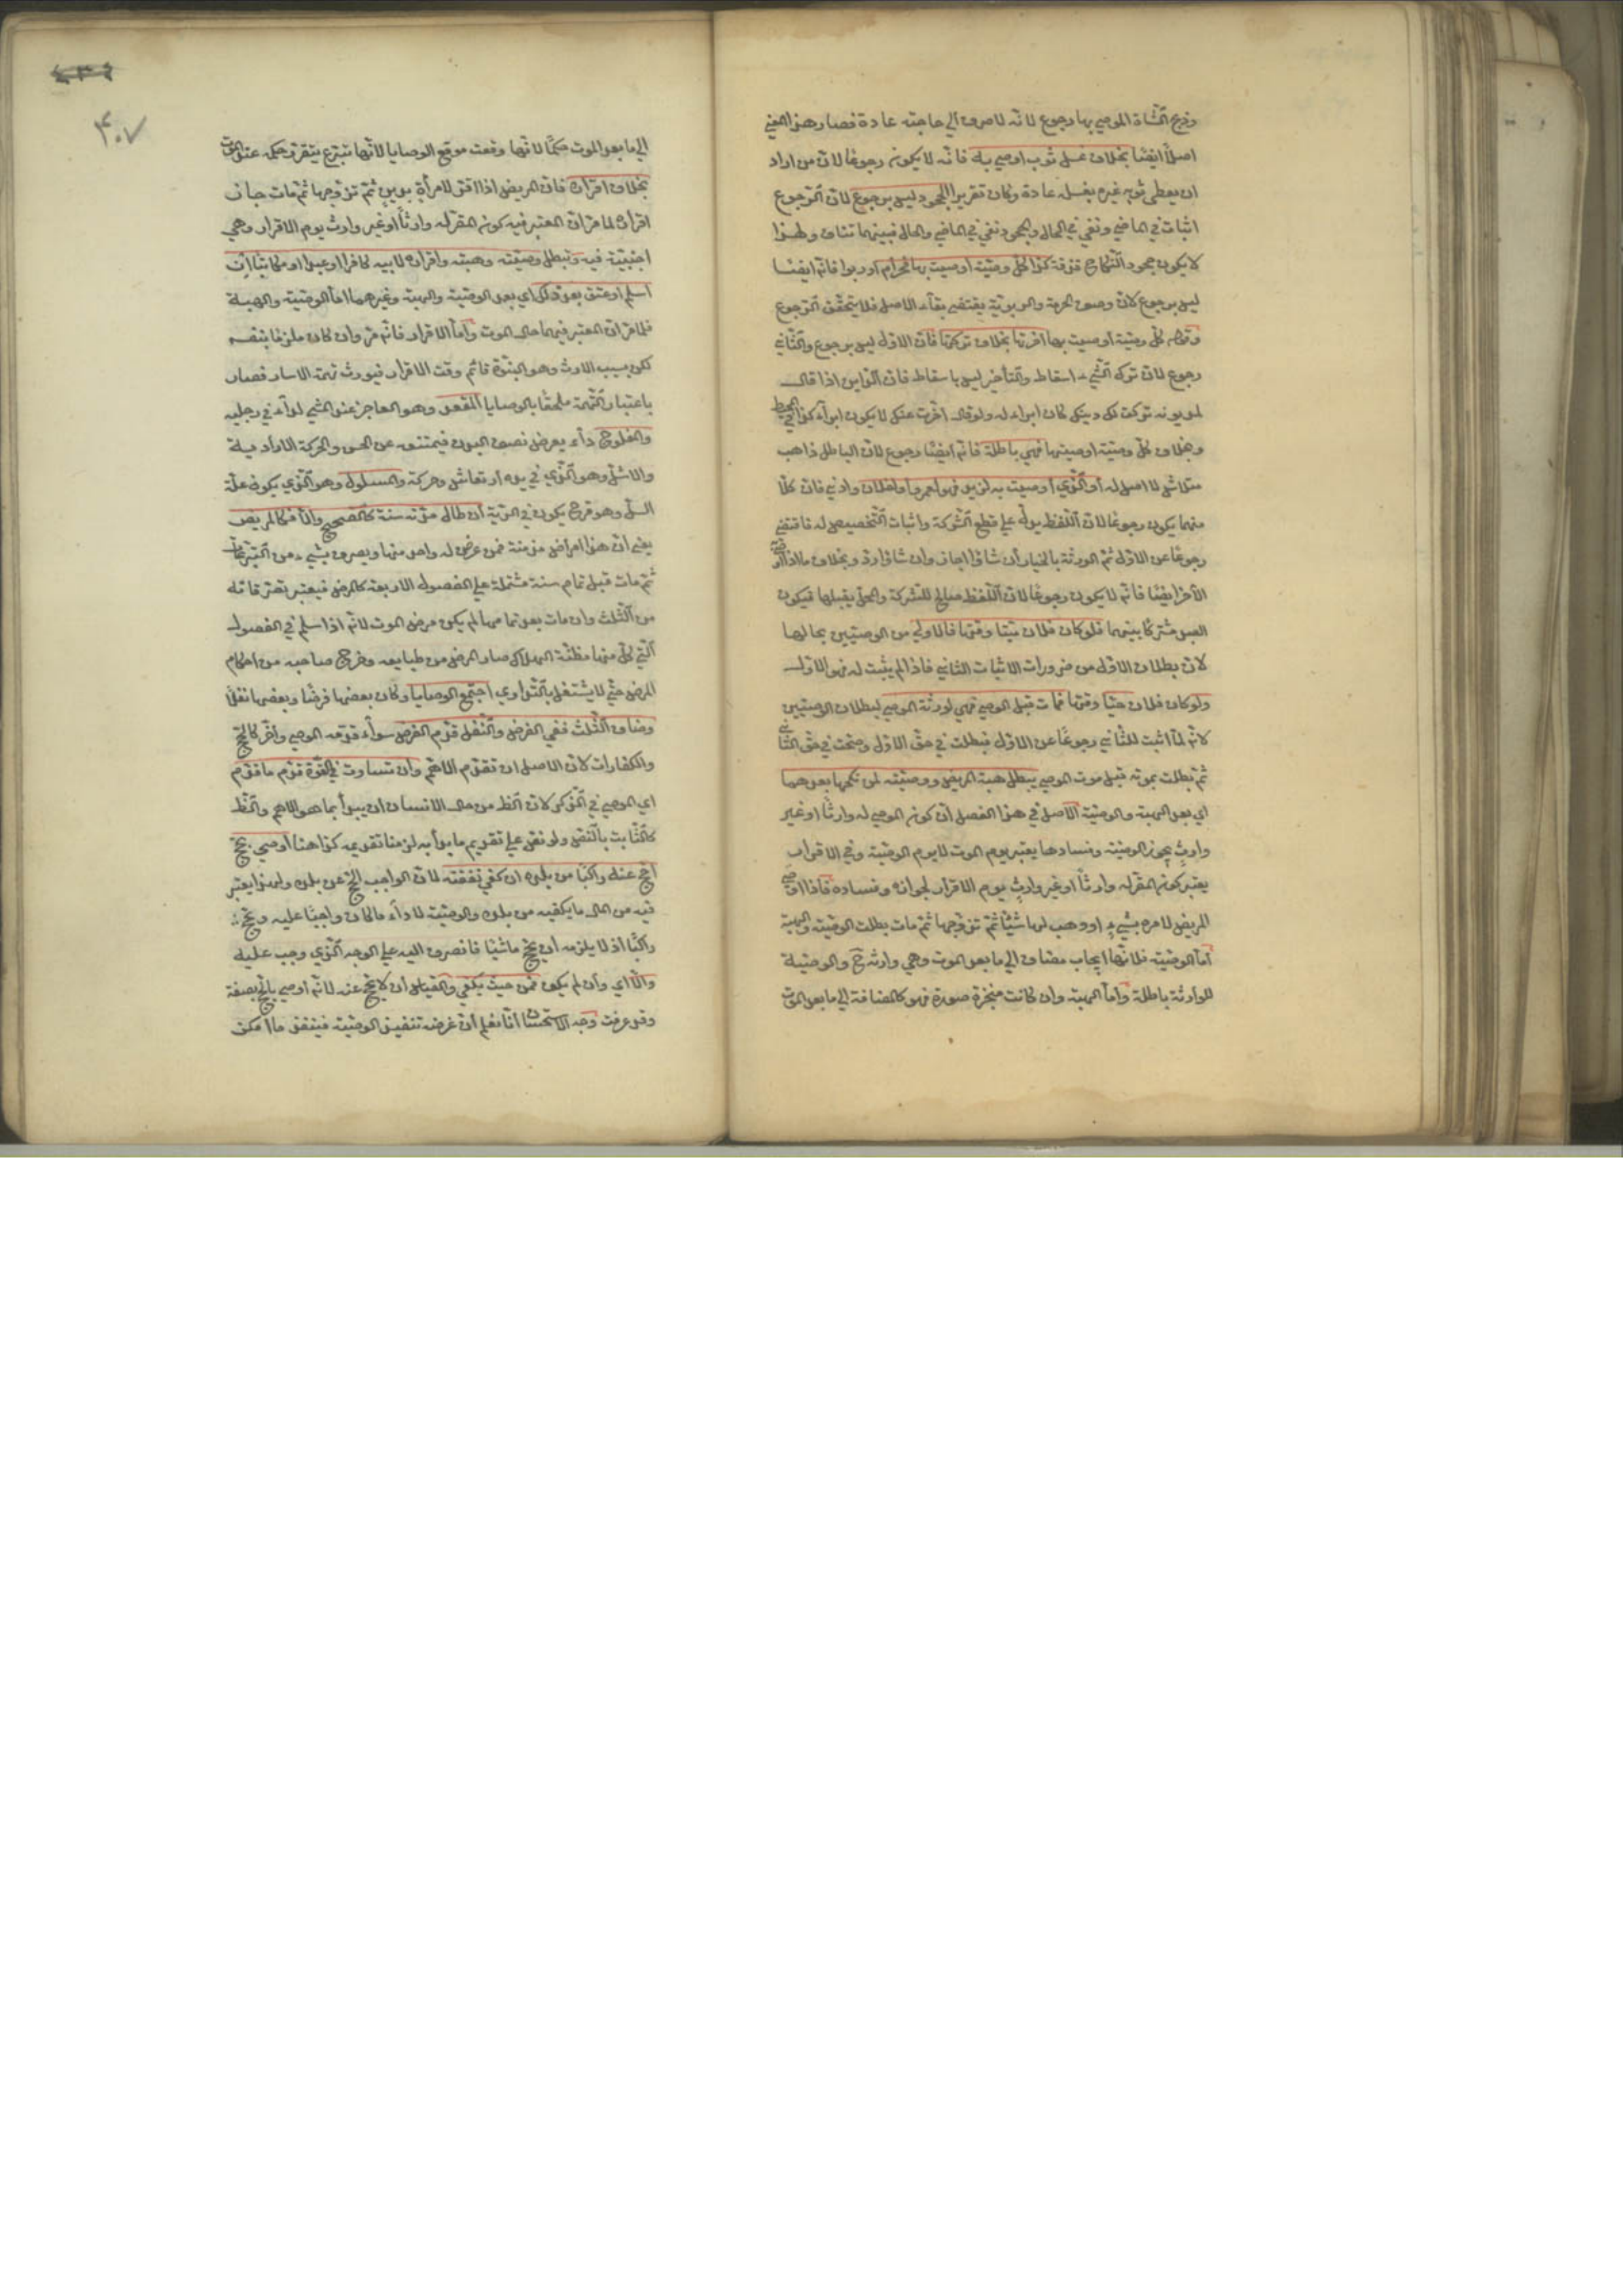 وذبح الشاة الموصى بها رجوع لانه لا صرف الي حاجته عادة فصار هذا المعني
اصلاً ايضًا بخلاف غسل ثوب اوصي به فانه لا يكونه رجوعًا لان من اراد
ان يعطى ثوبه غيره يغسله عادة وكان تقريرا الجحود ليس برجوع لان الرجوع
اثبات في الماضي ونفي في الحال والجحود نفي في الماضي والحال فبينهما تناف ولهذا
لا يكون جحود النكاح فرقة كذا كل وصية اوصيت بها فحرام او ربوا فانه ايضًا
ليس برجوع لان وصف الحرمة والربوية يقتضي بقاء الاصل فلا يتحقق الرجوع
وقوله كل وصية اوصيت بها اخرتها بخلاف تركتها فان الاول ليس برجوع والثاني
رجوع لان ترك الشيء اسقاط والتأخير ليس باسقاط فان الداين اذا قال
لمديونه تركت لك دينك كان ابراء له ولو قال اخرت عنك لا يكون ابراء كذا في المحيط
وبخلاف كل وصية اوصيتها فهي باطلة فانه ايضًا رجوع لان الباطل ذاهب
متلاش لا اصل له أو الذي اوصيت به لزيد فهو لعمرو أو لفلان وارثي فان كلًا
منهما يكون رجوعًا لان اللفظ يدل علي قطع الشركة واثبات التخصيص له فاقتضي
رجوعًا عن الاول ثم الورثة بالخيار أن شاؤا اجازوا وان شاؤا ردوا وبخلاف ما اذا اوصي
لآخر ايضًا فانه لا يكون رجوعًا لان اللفظ صالح للشركة والمحل يقبلها فيكون
العبد مشتركًا بينهما فلو كان فلان ميتا وقتها فالاولي من الوصيتين بحالها
لان بطلان الاول من ضرورات الاثبات الثاني فاذا لم يثبت له فهو للاول
ولو كان فلان حيًا وقتها فمات قبل الموصي فهي لورثة الموصي لبطلان الوصيتين
لانه لما اثبت للثاني رجوعًا عن الاول فبطلت في حق الاول وصحت في حق الثاني
ثم بطلت بموته قبل موت الموصي يبطل هبة المريض ووصيته لمن نكحها بعدهما
اي بعد الهبة والوصية الاصل في هذا الفصل ان كون الموصى له وارثًا او غير
وارثٍ لجواز الوصية وفسادها يعتبر يوم الموت لا يوم الوصية وفي الاقرار
يعتبر كون المقر له وارثًا او غير وارثٍ يوم الاقرار لجوازه وفساده فاذا اوصي
المريض لامرأة بشيءٍ او وهب لها شيئًا ثم تزوجها ثم مات بطلت الوصية والهبة
اما الوصية فلانها ايجاب مضاف الي ما بعد الموت وهي وارثه ح والوصية
للوارثة باطلة واما الهبة وان كانت منجزة صورة فهو كالمضافة الي ما بعد الموت
٤٠٧
الي ما بعد الموت حكمًا لانها وقعت موقع الوصايا لانها تبرع يتقرر حكمه عند الموت
بخلاف اقراره فان المريض اذا اقر لامرأة بدين ثم تزوجها ثم مات جاز
اقراره لما مر ان المعتبر فيه كون المقر له وارثًا او غير وارث يوم الاقرار وهي
اجنبية فيه وتبطل وصيته وهبته واقراره لابنه كافرا او عبدا او مكاتبا ان
اسلم او عتق بعد ذلك اي بعد الوصية والهبة وغيرهما اما الوصية والهبة
فلما مر ان المعتبر فيهما حال الموت واما الاقرار فانه مر وان كان ملزمًا بنفسه
لكن سبب الارث وهو البنوة قائم وقت الاقرار فيورث تهمة الايثار فصار
باعتبار التهمة ملحقًا بالوصايا المقعد وهو العاجز عن المشي لداء في رجليه
والمفلوج داء يعرض نصف البدن فيمتنع عن الحس والحركة الارادية
والاشل وهو الذي في يده ارتعاش وحركة والمسلول وهو الذي يكون علة
السل وهو قرح يكون في الرية ان طال مدته سنة كالصحيح والا فكالمريض
يعني ان هذا امراض مزمنة فمن عرض له واحد منها ويصرف بشيء من التبرعات
ثم مات قبل تمام سنة مشتملة علي الفصول الاربعة كالمرض فيعتبر تصرفاته
من الثلث وان مات بعد تمامها لم يكن مرض الموت لانه اذا سلم في الفصول
التي كل منها مظنة الهلاك صار المرض من طبايعه وخرج صاحبه من احكام
المرض حتي لا يشتغل بالتداوي اجتمع الوصايا وكان بعضها فرضًا وبعضها نفلًا
وضاق الثلث ففي الفرض والنفل قدم الفرض سواء قدمه الموصي واخره كالحج
والكفارات لان الاصل ان تقدم الاهم وان تساوت في القوة قدم ما قدم
اي الموصي في الذكر لان الظ من حال الانسان ان يبدأ بما هو الاهم والظ
كالثابت بالنص ولو نص علي تقديم ما بدأ به لزمنا تقديمه كذا هنا أوصي بحج
احج عنه راكبًا من بلده ان كفي نفقته لان الواجب الحج من بلده ولهذا يعتبر
فيه من المال ما يكفيه من بلده والوصية لاداء ما كان واجبًا عليه ويحج
راكبًا اذ لا يلزمه ان يحج ماشيًا فانصرف اليه علي الوجه الذي وجب عليه
والا اي وان لم يكف فمن حيث يكفي والقياس ان لا يحج عنه لانه اوصي بالحج بصفة
وقد عرفت وجه الاستحسان انا نعلم ان غرضه تنفيذ الوصية فينفذ ما امكن